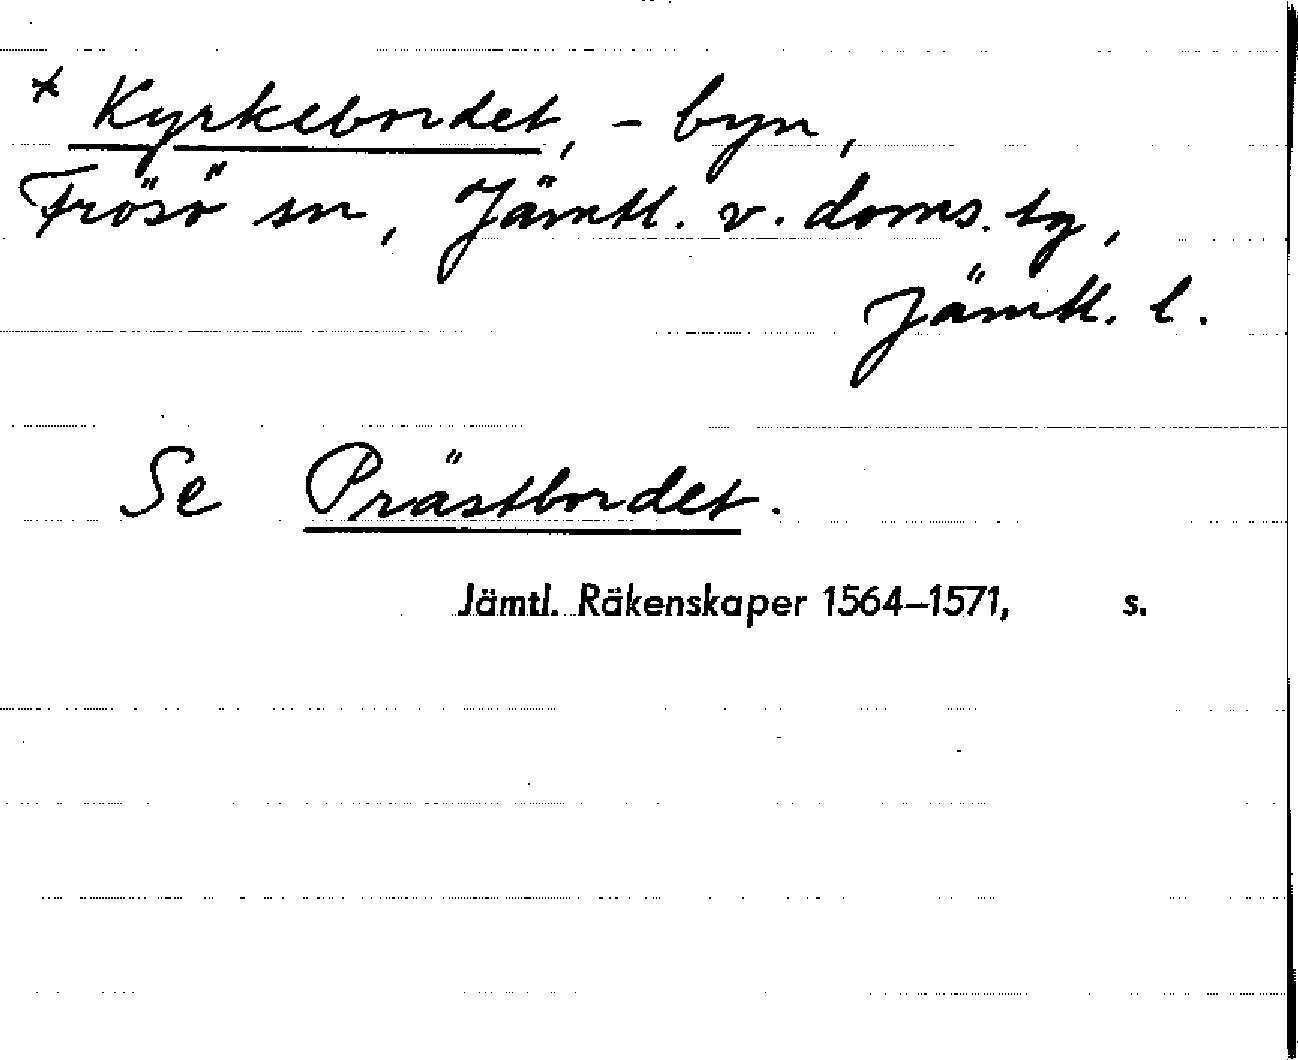 * Kyrkebordet, - byn,
Frösö sn, Jämtl. v. doms. tg,
Jämtl. l.
Se Prästbordet.
Jämtl. Räkenskaper 1564–1571, s.